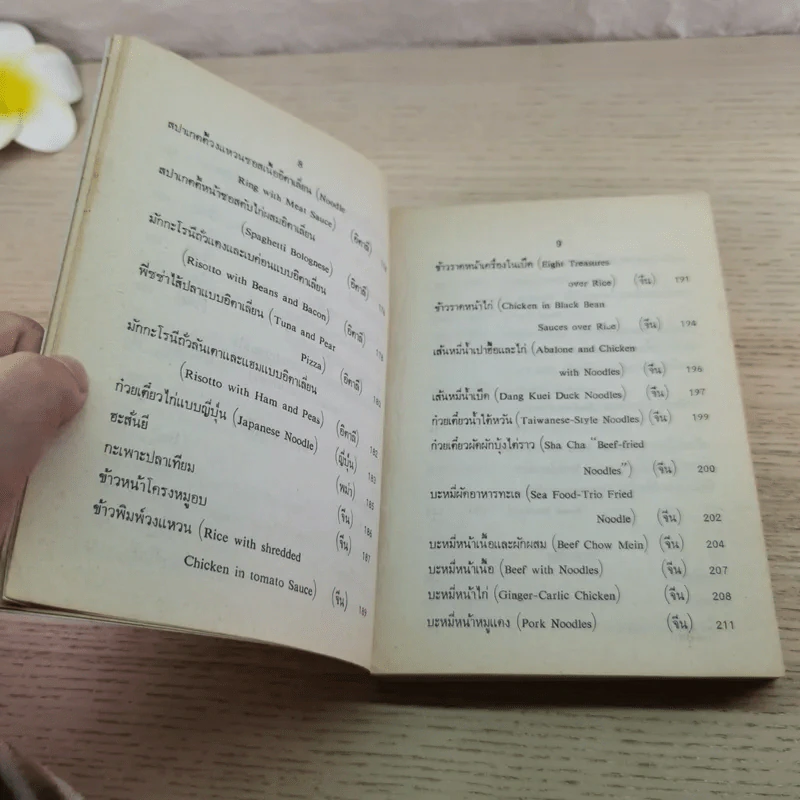 8
สปาเกตตี้วงแหวนซอสเนื้ออิตาเลี่ยน (Noodle
Ring with Meat Sauce) (อิตาลี)
สปาเกตตี้หน้าซอสตับไก่ผสมอิตาเลี่ยน
(Spaghetti Bolognese) (อิตาลี)
มักกะโรนีถั่วแดงและเบค่อนแบบอิตาเลี่ยน
(Risotto with Beans and Bacon) (อิตาลี)
พีซซ่าไส้ปลาแบบอิตาเลี่ยน (Tuna and Pear
Pizza) (อิตาลี) 180
มักกะโรนีถั่วลันเตาและแฮมแบบอิตาเลี่ยน
(Risotto with Ham and Peas) (อิตาลี) 182
ก๋วยเตี๋ยวไก่แบบญี่ปุ่น (Japanese Noodle) (ญี่ปุ่น) 183
ฮะสั่นยี (พม่า) 185
กะเพาะปลาเทียม (จีน) 186
ข้าวหน้าโครงหมูอบ (จีน) 187
ข้าวพิมพ์วงแหวน (Rice with shredded
Chicken in tomato Sauce) (จีน) 189
9
ข้าวราดหน้าเครื่องในเป็ด (Eight Treasures
over Rice) (จีน) 191
ข้าวราดหน้าไก่ (Chicken in Black Bean
Sauces over Rice) (จีน) 194
เส้นหมี่น้ำเปาฮื้อและไก่ (Abalone and Chicken
with Noodles) (จีน) 196
เส้นหมี่น้ำเป็ด (Dang Kuei Duck Noodles) (จีน) 197
ก๋วยเตี๋ยวน้ำไต้หวัน (Taiwanese-Style Noodles) (จีน) 199
ก๋วยเตี๋ยวผัดผักบุ้งไต่ราว (Sha Cha "Beef-fried
Noodles") (จีน) 200
บะหมี่ผัดอาหารทะเล (Sea Food-Trio Fried
Noodle) (จีน) 202
บะหมี่หน้าเนื้อและผักผสม (Beef Chow Mein) (จีน) 204
บะหมี่หน้าเนื้อ (Beef with Noodles) (จีน) 207
บะหมี่หน้าไก่ (Ginger-Carlic Chicken) (จีน) 208
บะหมี่หน้าหมูแดง (Pork Noodles) (จีน) 211